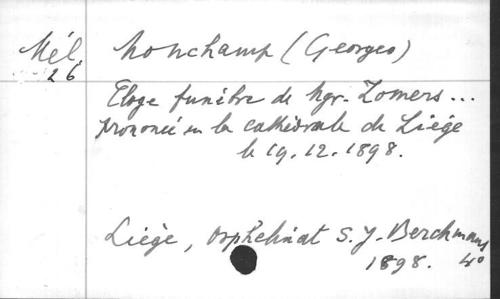 Mél. Monchamp (Georges)
26
Eloge funèbre de Mgr. Zomers...
prononcé en la cathédrale de Liège
le 19.12.1898.
Liège, Orphelinat S. J. Berchmans
1898. 4°